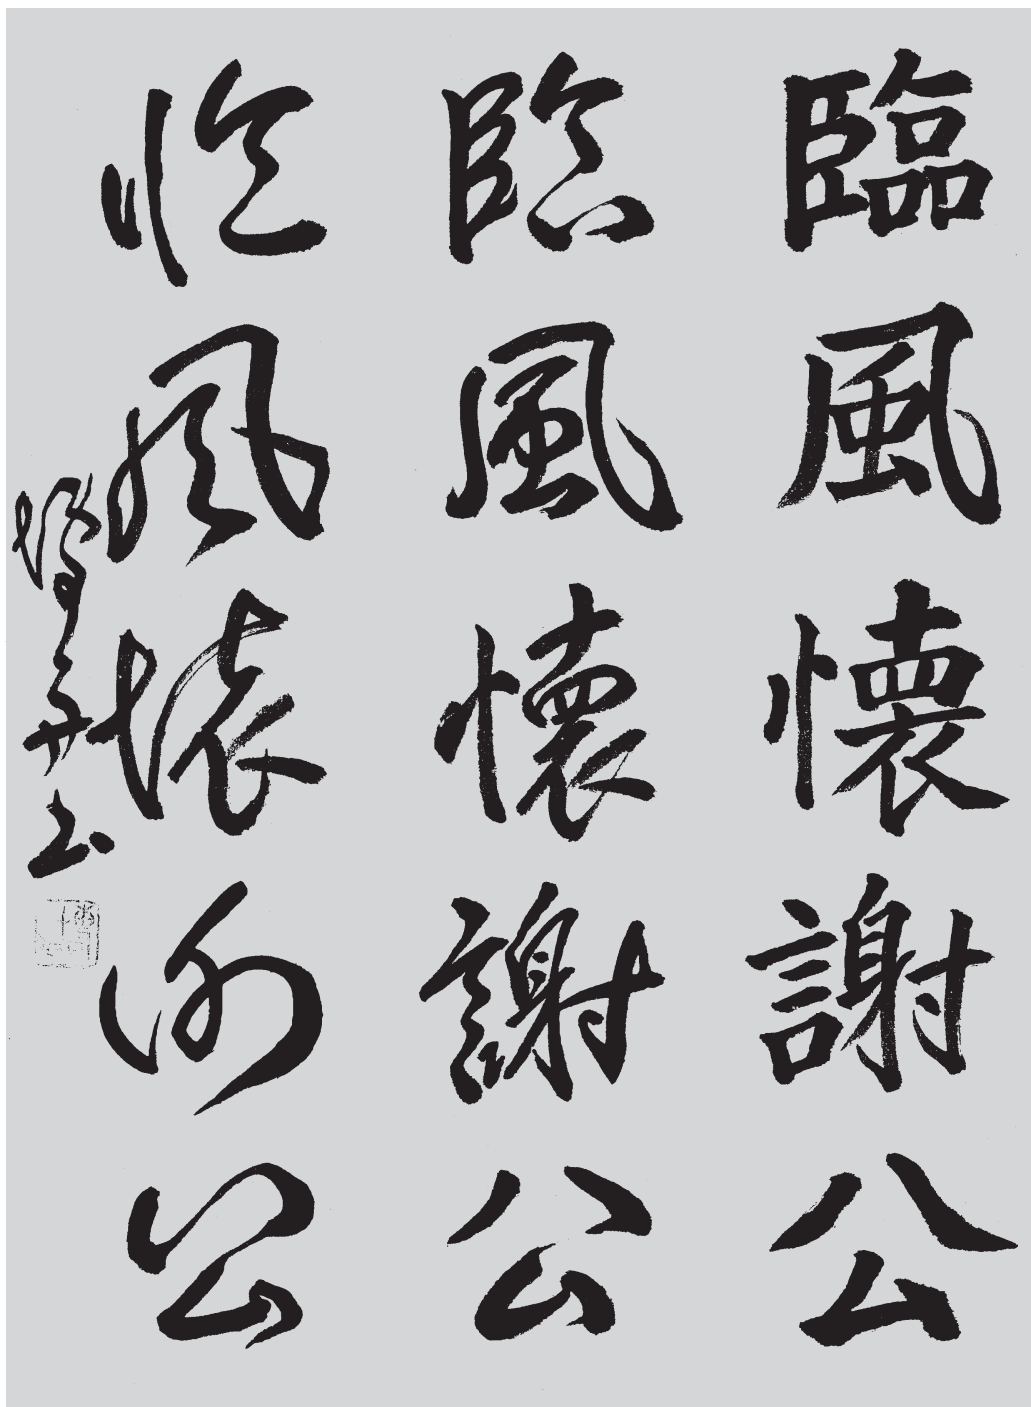 臨風懷謝公
臨風懷謝公
臨風懷謝公
書